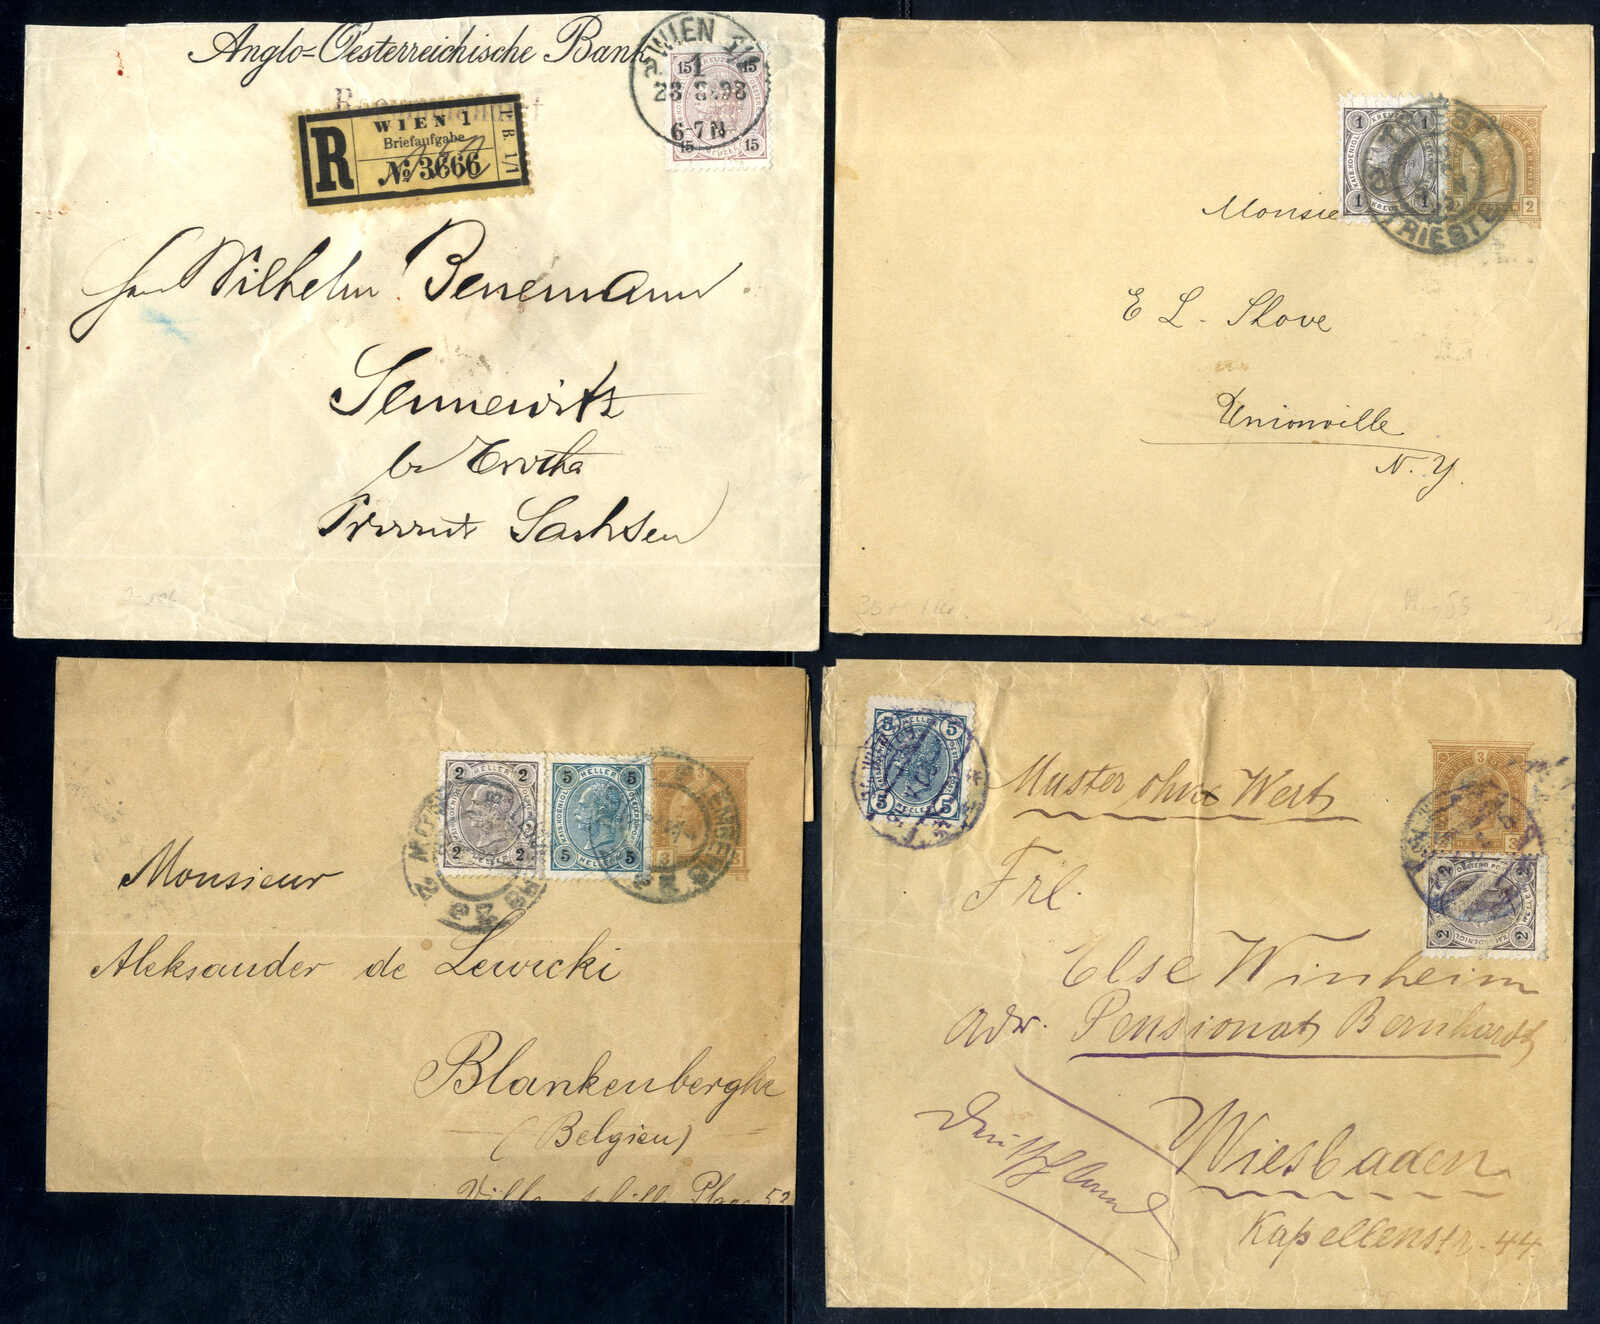 Anglo-Oesterreichische Bank
WIEN 1/1
1
6-7 N
15 15
15 15
R
WIEN 1
Briefaufgabe
№ 3666
Wilhelm Benemann
Sennewitz
b/ Trotha
Provinz Sachsen
TRIEST
TRIESTE
1 1
1 1
2
Monsie
E L. Slove
Unionville
N. Y.
2 2
2 2
HELLER
5 5
5 5
HELLER
HELLER
3
Monsieur
Aleksander de Lewicki
Blankenberghe
(Belgien)
5 5
5 5
HELLER
HELLER
3
3 3
2 2
2 2
Muster ohne Wert
Frl.
Else Winheim
adr. Pensionat Bernhardt
Deutschland
Wiesbaden
Kapellenstr. 44